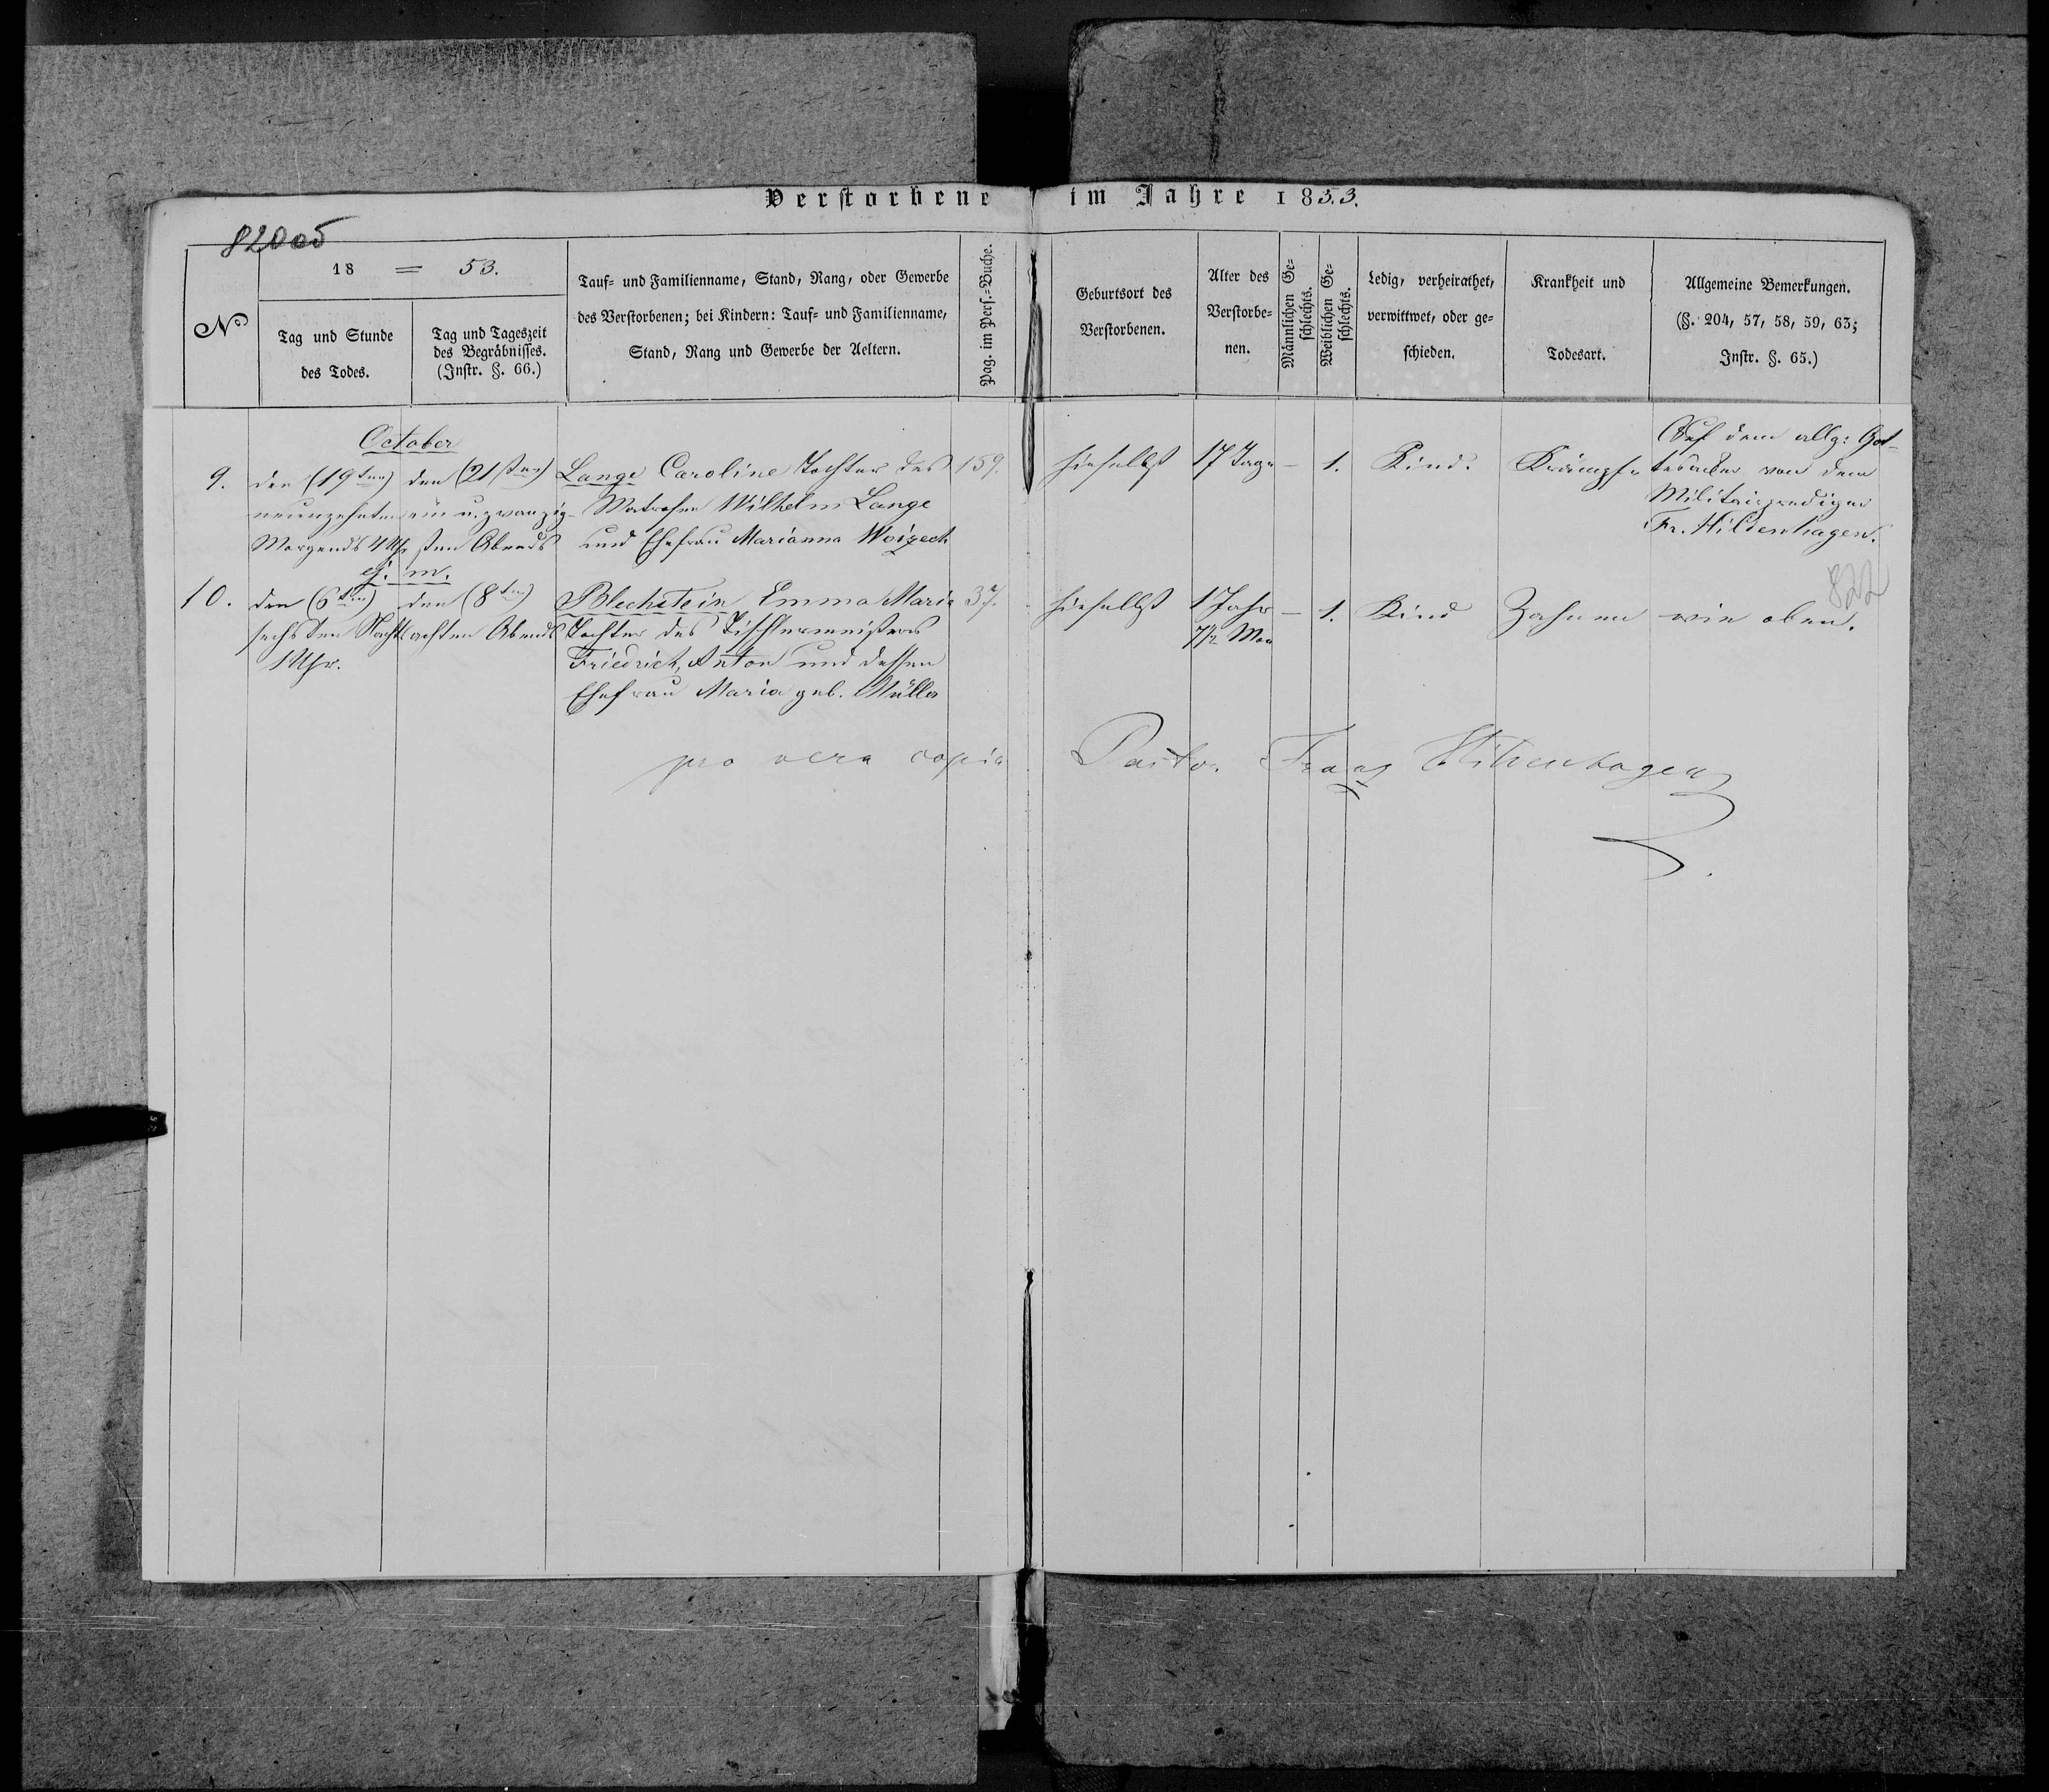 Verstorbene im Jahre 1853.
82005
№
18 = 53.
Tag und Stunde
des Todes.
Tag und Tageszeit
des Begräbnisses.
(Instr. §. 66.)
Tauf- und Familienname, Stand, Rang, oder Gewerbe
des Verstorbenen; bei Kindern: Tauf- und Familienname,
Stand, Rang und Gewerbe der Aeltern.
Pag. im Pers.-Buche.
Geburtsort des
Verstorbenen.
Alter des
Verstorbe-
nen.
Männlichen Ge-
schlechts.
Weiblichen Ge-
schlechts.
Ledig, verheirathet,
verwittwet, oder ge-
schieden.
Krankheit und
Todesart.
Allgemeine Bemerkungen.
(§. 204, 57, 58, 59, 63;
Instr. §. 65.)
October
9.
den (19ten)
neunzehnten
Morgends 4 Uhr
den (21sten)
ein u. zwanzig-
sten Abends
Lange Caroline Tochter des
Matrosen Wilhelm Lange
und Ehefrau Marianna Woizech
159.
hieselbst
17 Tage
—
1.
Kind.
Krämpfe
Auf dem allg: Got-
tesacker von dem
Militairprediger
Fr. Hildenhagen.
ej. m.
10.
den (6ten)
sechsten Nachts
1 Uhr.
den (8ten)
achten Abends
Blechstein Emma Maria
Tochter des Tischlermeisters
Friedrich, Anton und dessen
Ehefrau Maria geb. Müller
37.
hieselbst
1 Jahr
7½ Mon
—
1.
Kind
Zahnen
wie oben.
822
pro vera copia Pastor Franz Hildenhagen